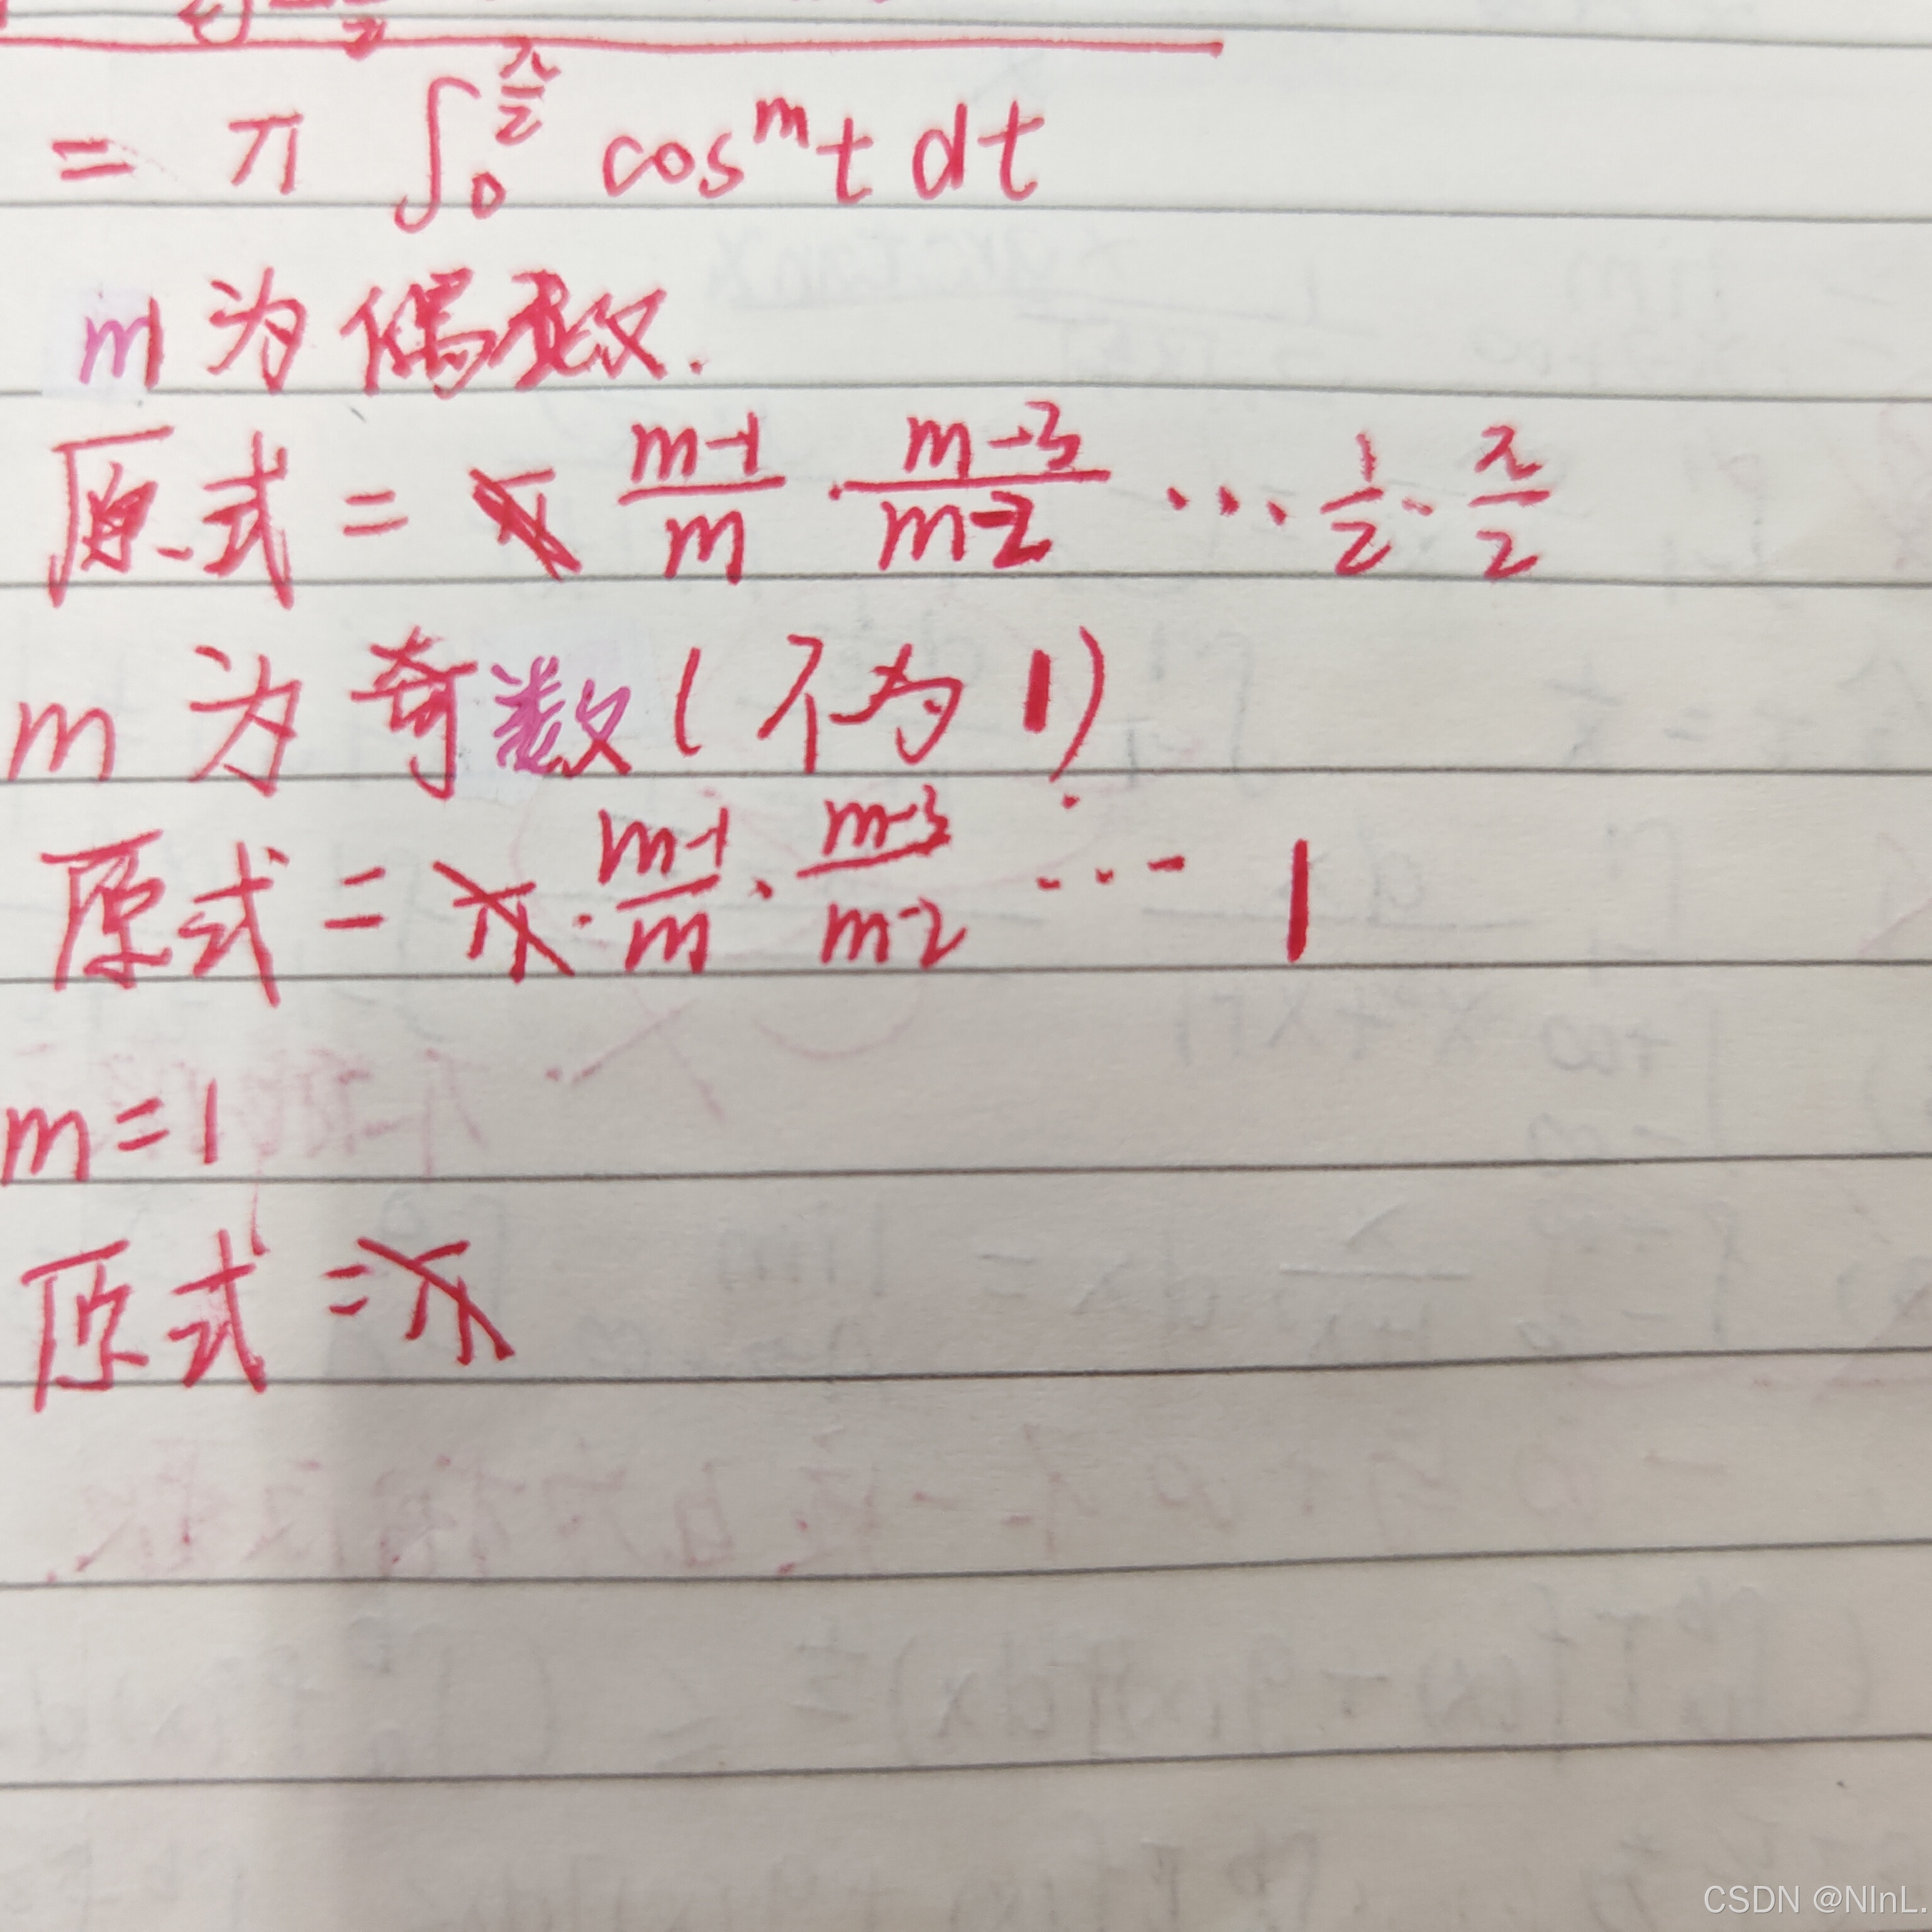 = π ∫₀^{π/2} cos^m t dt
m为偶数.
原式 = π (m-1)/m · (m-3)/(m-2) ··· 1/2 · π/2
m为奇数(不为1)
原式 = π · (m-1)/m · (m-3)/(m-2) ··· 1
m=1
原式 = π
CSDN @NInL.